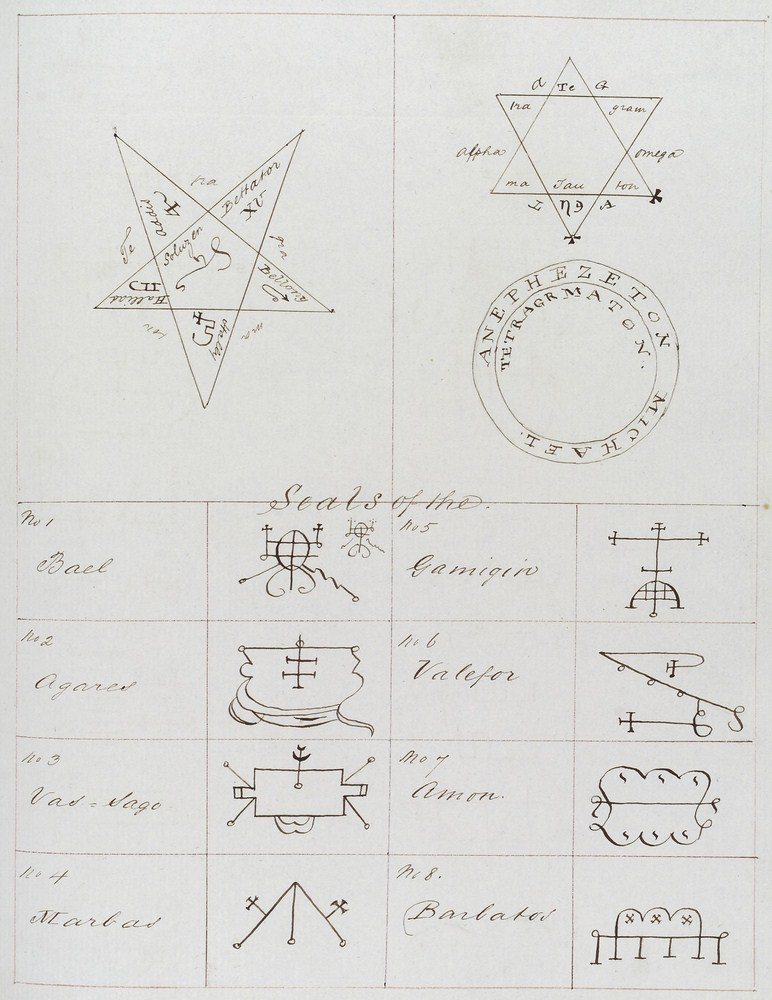 Te
ra
gra
ma
ton
addis
Bettator
XV
Soluzen
Bellony
Hallias
Hally
A Te G
tra gram
alpha omega
ma Tau ton
ANEPHEZETON MICHAEL.
TETRAGRMATON.
Seals of the.
No 1
Bael
No 2
Agares
No 3
Vas=sago
No 4
Marbas
No 5
Gamigin
No 6
Valefor
No 7
Amon.
No 8.
Barbatos